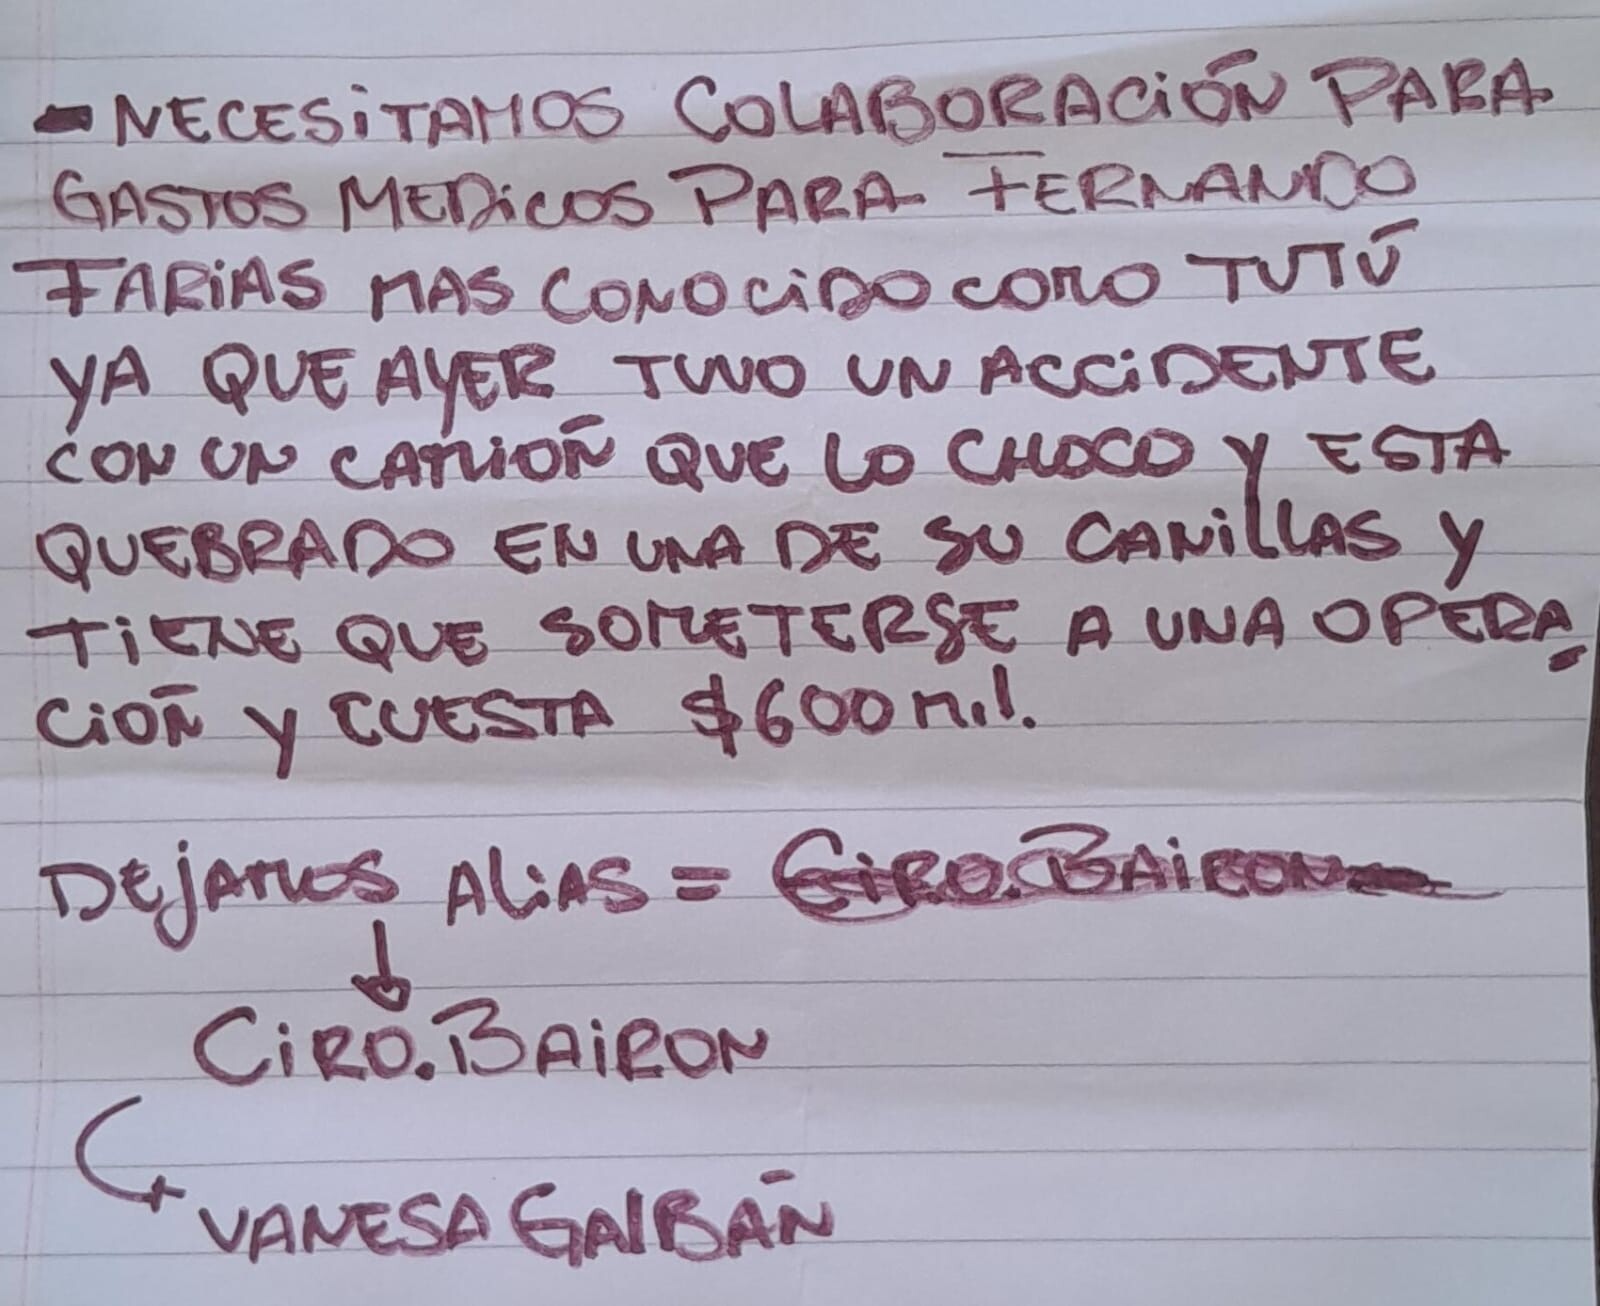 - NECESITAMOS COLABORACIÓN PARA
GASTOS MEDICOS PARA FERNANDO
FARIAS MAS CONOCIDO COMO TUTÚ
YA QUE AYER TUVO UN ACCIDENTE
CON UN CAMIOÑ QUE LO CHOCO Y ESTA
QUEBRADO EN UNA DE SU CANILLAS Y
TIENE QUE SOMETERSE A UNA OPERA
CIOÑ Y CUESTA $600 mil.
DEjAMOS ALIAS = CIRO.BAIRON
CIRO.BAIRON
VANESA GALBÁN